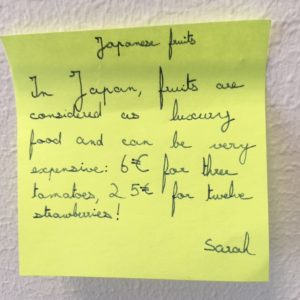 Japanese fruits
In Japan, fruits are
considered as luxury
food and can be very
expensive: 6€ for three
tomatoes, 25€ for twelve
strawberries!
Sarah